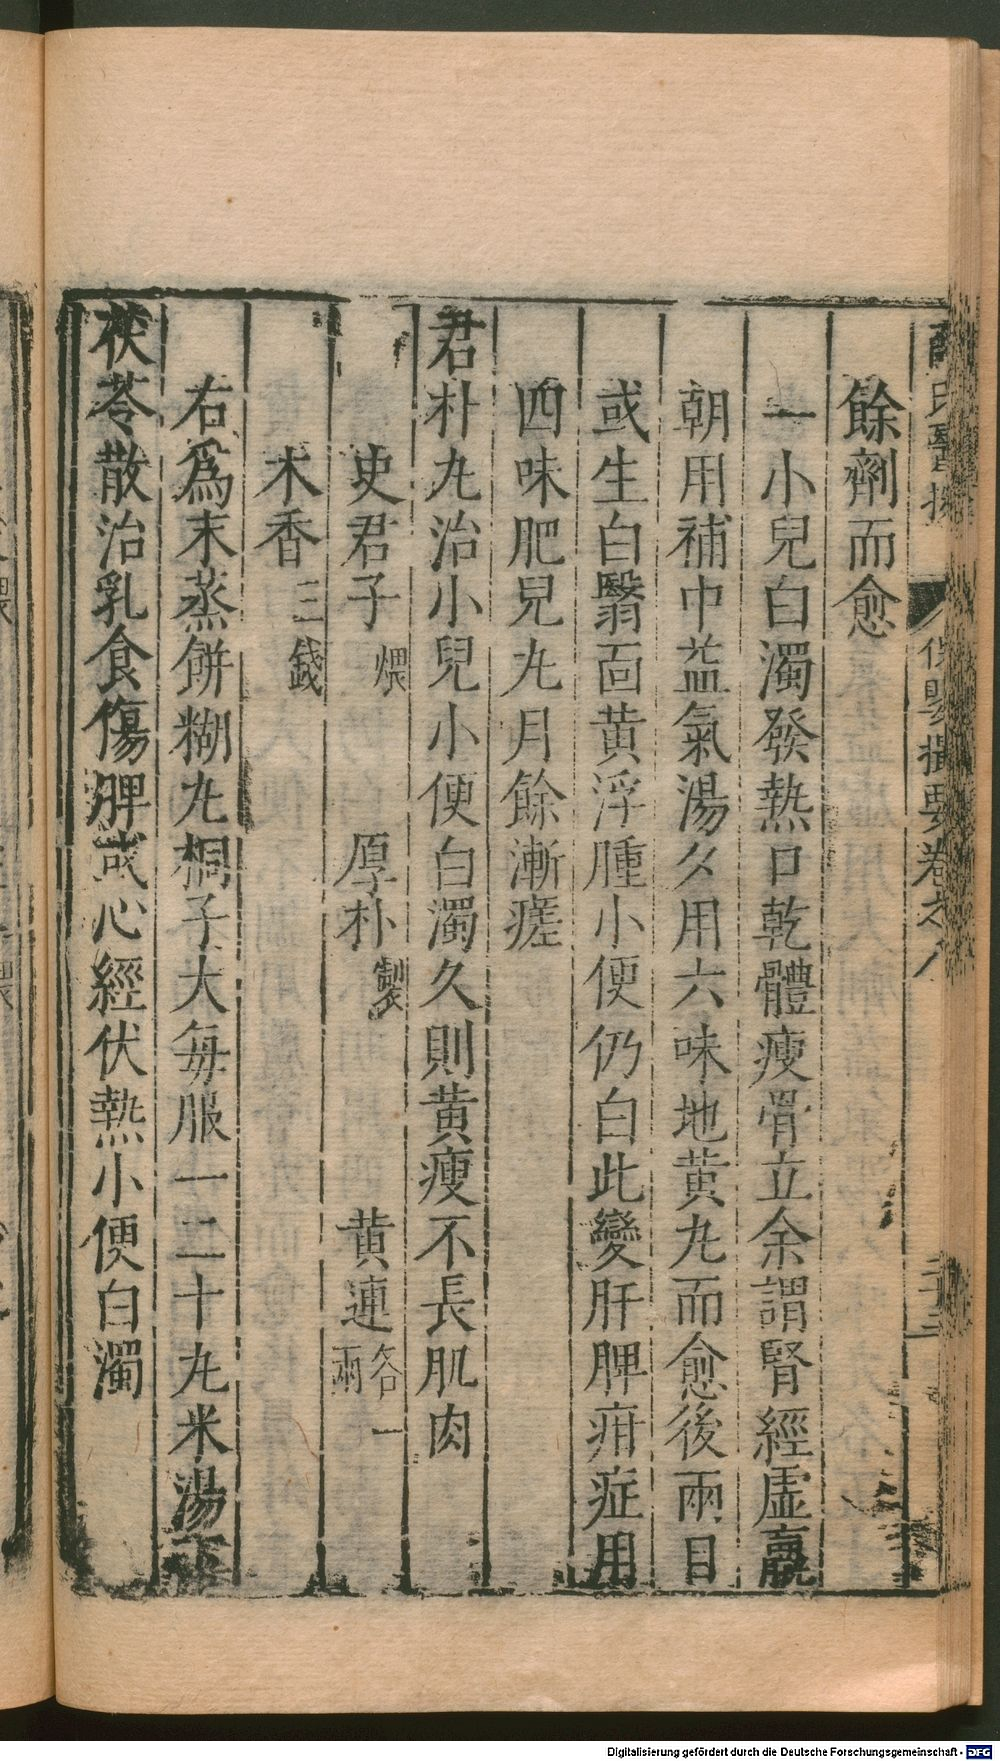 薛氏醫按 保嬰撮要卷之八
餘劑而愈
一小兒白濁發熱口乾體瘦骨立余謂腎經虛羸
朝用補中益氣湯夕用六味地黃丸而愈後兩目
或生白翳面黃浮腫小便仍白此變肝脾疳症用
四味肥兒丸月餘漸瘥
君朴丸治小兒小便白濁久則黃瘦不長肌肉
史君子煨 厚朴製 黃連各一兩
木香三錢
右爲末蒸餅糊丸桐子大每服一二十丸米湯下
茯苓散治乳食傷脾或心經伏熱小便白濁
Digitalisierung gefördert durch die Deutsche Forschungsgemeinschaft - DFG